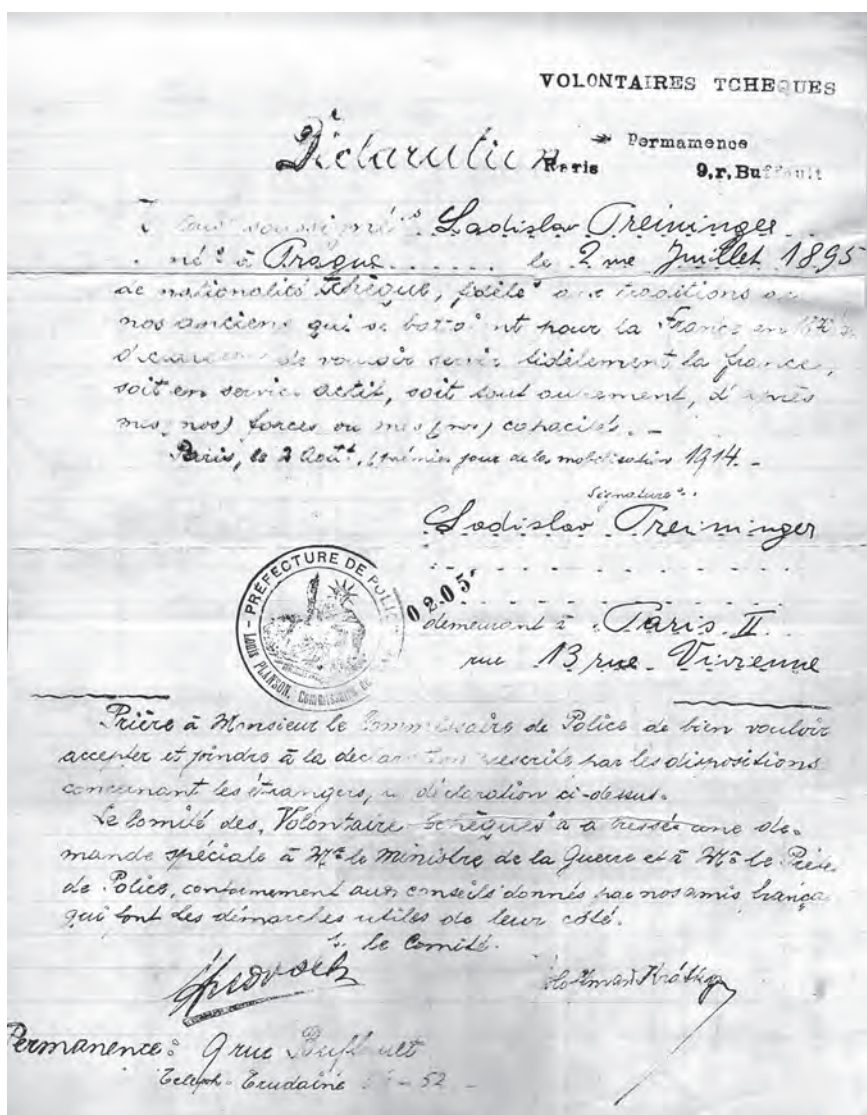 VOLONTAIRES TCHEQUES
Déclaration
Permamence
Paris 9,r,Buffault
soussigné Ladislav Treininger
né à Prague le 2 me Juillet 1895
de nationalité tchèque, fidèle aux traditions de
nos anciens qui se battaient pour la France en
de vouloir servir fidèlement la france,
soit en service actif, soit tout autrement, d'après
mes (nos) forces ou mes (nos) capacités. -
Paris, le 2 Août, (premier jour de la mobilisation 1914. -
Signature
Ladislav Treininger
PRÉFECTURE DE POLICE
LOUIS PLANSON,
0205
demeurant à Paris II
rue 13 rue Vivienne
Prière à Monsieur le Commissaire de Police de bien vouloir
accepter et joindre à la declaration prescrite par les dispositions
concernant les étrangers, la déclaration ci-dessus.
Le Comité des Volontaire tchèques a adressé une de-
mande spéciale à Mr le Ministre de la Guerre et à Mr le Préfet
de Police, conformement aux conseils donnés par nos amis frança
qui font les démarches utiles de leur côté.
le Comité.
Permanence: 9 rue Buffault
Teleph. Trudaine 52 -